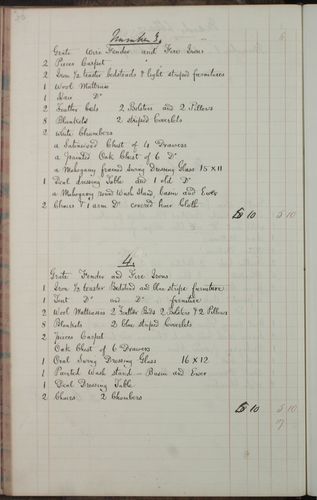 Number 3
Grate Wire Fender and Fire Irons
2 Pieces Carpet
2 Iron 1/2 teaster bedsteads & light striped furnitures
1 Wool Mattrass
1 Hair Do
2 Feather beds 2 Bolsters and 2 Pillows
8 Blankets 2 striped Coverlets
2 White Chambers
a Satinwood Chest of 4 Drawers
a painted Oak Chest of 6 Do
a Mahogany framed Swing Dressing Glass 15 x 11
1 Deal dressing Table and 1 old Do
a Mahogany round Wash Stand basin and Ewer
2 Chairs & 1 arm Do covered hair Cloth
5 10 5 10
4
Grate Fender and Fire Irons
1 Iron 1/2 teaster Bedsted and blue stripe furniture
1 Tent Do and Do furniture
2 Wool Mattrasses 2 Feather Beds 2 Bolsters & 2 Pillows
8 Blankets 2 blue striped Coverlets
2 pieces Carpet
Oak Chest of 6 Drawers
1 Oval Swing Dressing Glass 16 x 12
1 Painted Wash stand - Basin and Ewer
1 Deal Dressing Table
2 Chairs 2 Chambers
5 10 5 10